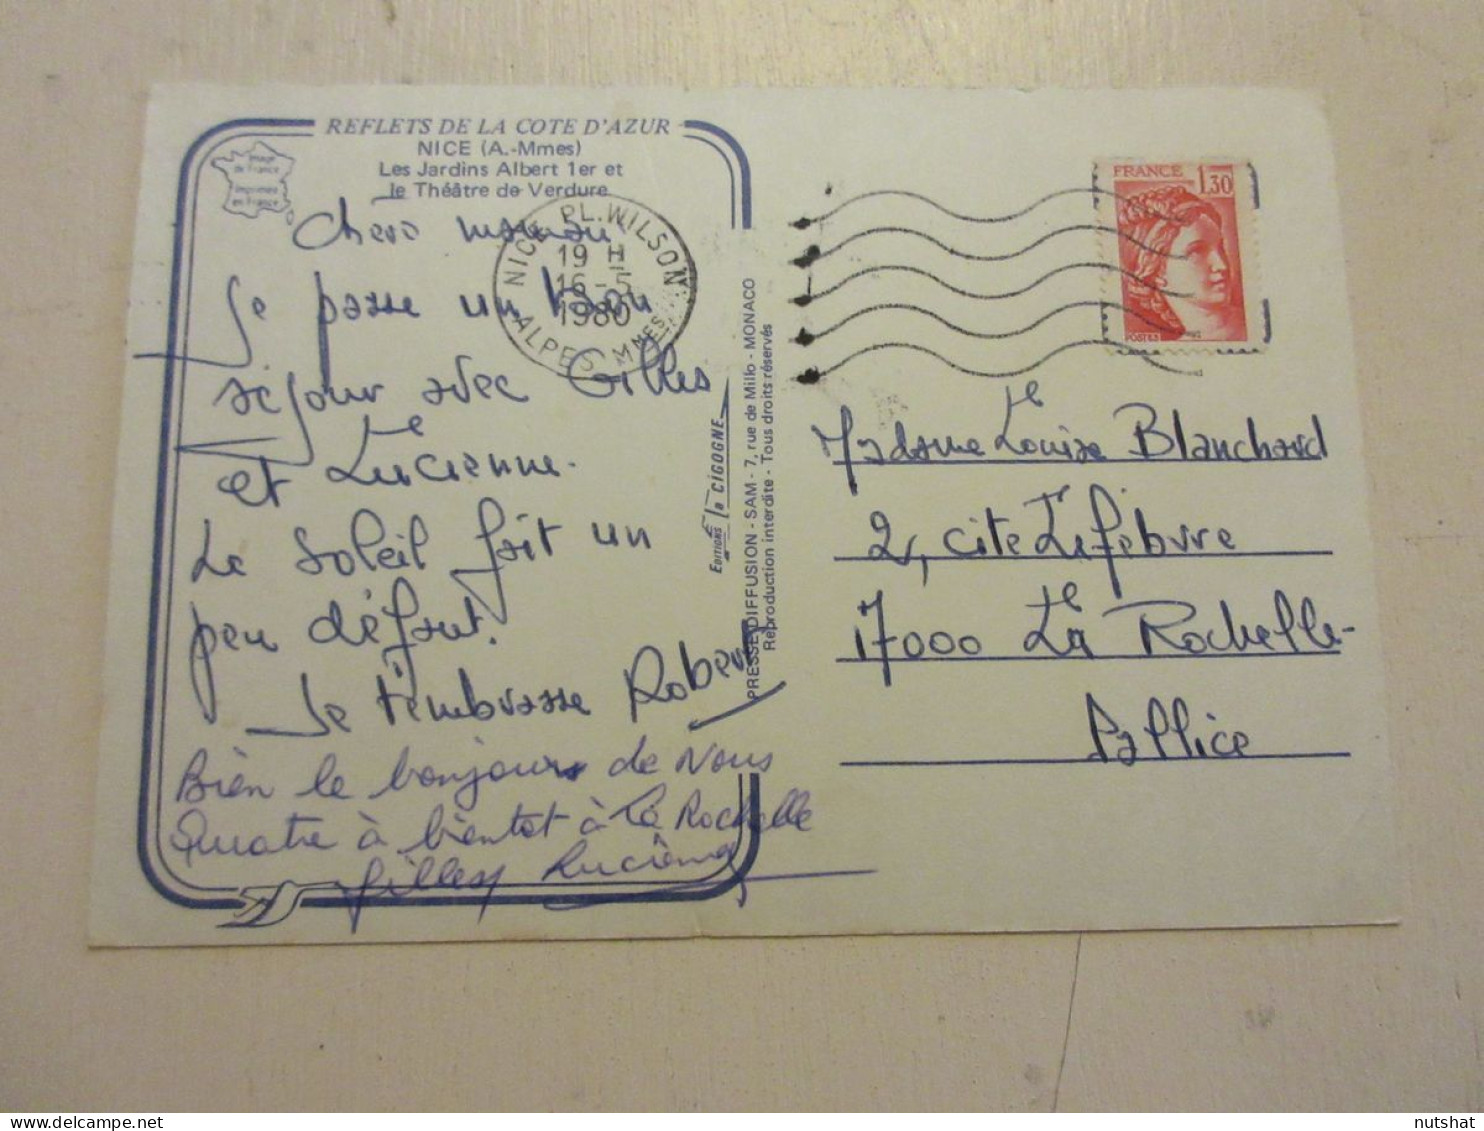 REFLETS DE LA COTE D'AZUR
NICE (A.-Mmes)
Les Jardins Albert 1er et
le Théâtre de Verdure
Image
de France
Imprimée
en France
Chère maman
Je passe un bon
séjour avec Gilles
et Lucienne.
Le soleil fait un
peu défaut.
Je t'embrasse Robert
Bien le bonjour de Nous
Quatre à bientot à La Rochelle
Gilles Lucienne
NICE PL. WILSON
19 H
16-5
1980
ALPES MMES
EDITIONS la CIGOGNE
PRESSE-DIFFUSION - SAM - 7, rue de Millo - MONACO
Reproduction interdite - Tous droits réservés
FRANCE 1,30
POSTES
Madame Louise Blanchard
2, cite Lefebvre
17000 La Rochelle-
Pallice
nutshat